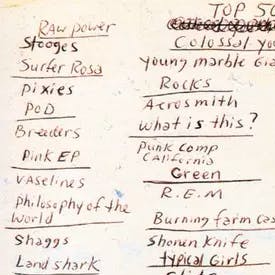 TOP 50
Raw power
Stooges
Surfer Rosa
Pixies
POD
Breeders
Pink EP
Vaselines
Philosophy of the
World
Shaggs
Land shark
Colossal yo
young marble Gia
Rocks
Aerosmith
What is this?
Punk Comp
California
Green
R.E.M
Burning farm cas
Shonen Knife
Typical Girls
Slits